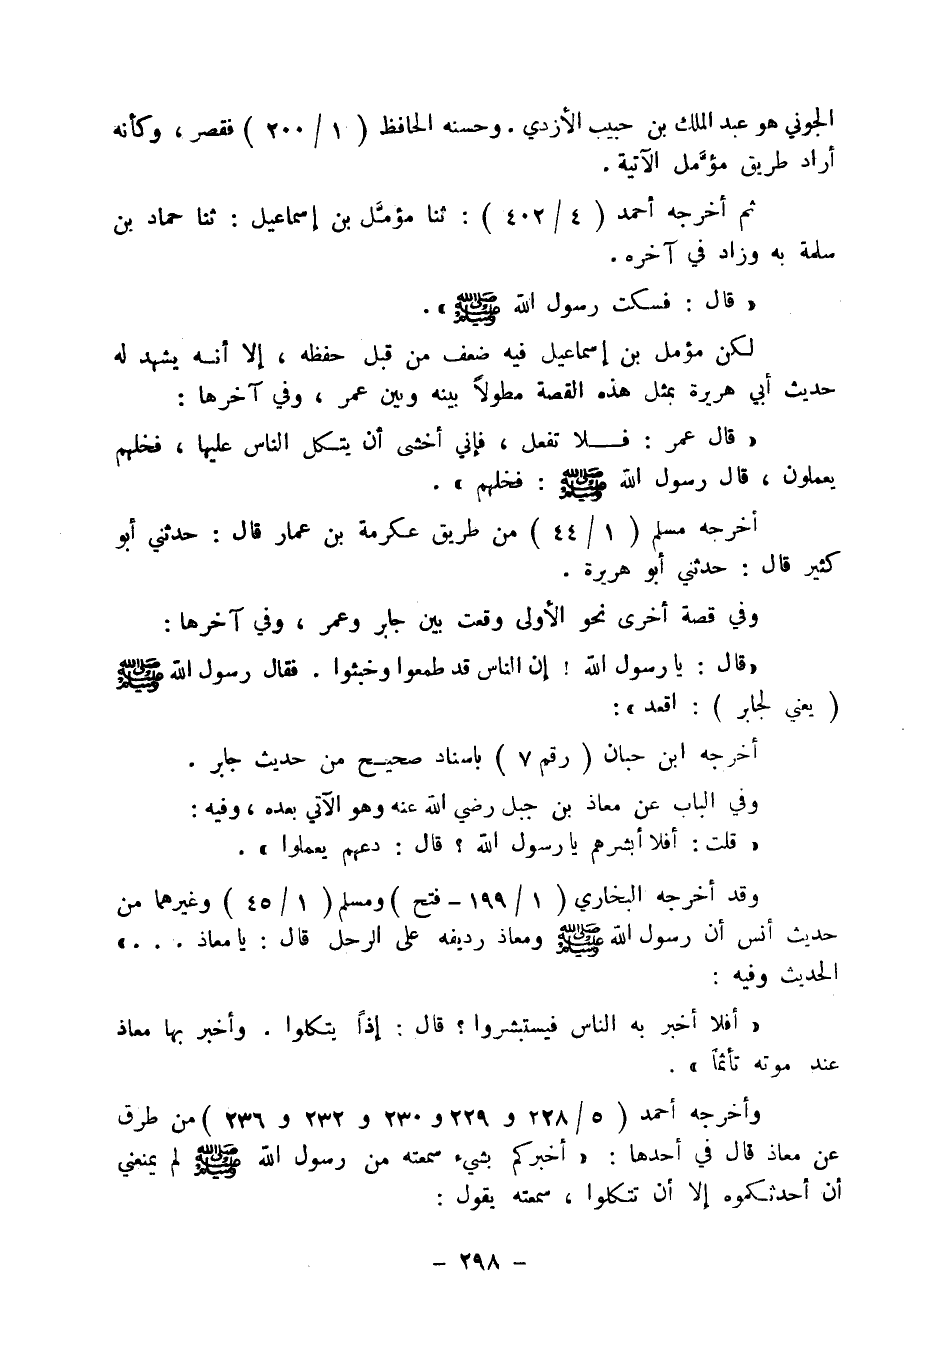 الجوني هو عبد الملك بن حبيب الأزدي . وحسنه الحافظ ( ١ / ٢٠٠ ) فقصر ، وكأنه
أراد طريق مؤمَّل الآتية .
ثم أخرجه أحمد ( ٤ / ٤٠٢ ) : ثنا مؤمَّل بن إسماعيل : ثنا حماد بن
سلمة به وزاد في آخره .
« قال : فسكت رسول الله ﷺ » .
لكن مؤمل بن إسماعيل فيه ضعف من قبل حفظه ، إلا أنه يشهد له
حديث أبي هريرة بمثل هذه القصة مطولاً بينه وبين عمر ، وفي آخرها :
« قال عمر : فلا تفعل ، فإني أخشى أن يتكل الناس عليها ، فخلهم
يعملون ، قال رسول الله ﷺ : فخلهم » .
أخرجه مسلم ( ١ / ٤٤ ) من طريق عكرمة بن عمار قال : حدثني أبو
كثير قال : حدثني أبو هريرة .
وفي قصة أخرى نحو الأولى وقعت بين جابر وعمر ، وفي آخرها :
« قال : يا رسول الله ! إن الناس قد طمعوا وخبثوا . فقال رسول الله ﷺ
( يعني لجابر ) : اقعد » :
أخرجه ابن حبان ( رقم ٧ ) باسناد صحيح من حديث جابر .
وفي الباب عن معاذ بن جبل رضي الله عنه وهو الآتي بعده ، وفيه :
« قلت : أفلا أبشرهم يا رسول الله ؟ قال : دعهم يعملوا » .
وقد أخرجه البخاري ( ١ / ١٩٩ - فتح ) ومسلم ( ١ / ٤٥ ) وغيرهما من
حديث أنس أن رسول الله ﷺ ومعاذ رديفه على الرحل قال : يا معاذ . . . »
الحديث وفيه :
« أفلا أخبر به الناس فيستبشروا ؟ قال : إذاً يتكلوا . وأخبر بها معاذ
عند موته تأثماً » .
وأخرجه أحمد ( ٥ / ٢٢٨ و ٢٢٩ و ٢٣٠ و ٢٣٢ و ٢٣٦ ) من طرق
عن معاذ قال في أحدها : « أخبركم بشيء سمعته من رسول الله ﷺ لم يمنعني
أن أحدثكموه إلا أن تتكلوا ، سمعته يقول :
- ٢٩٨ -